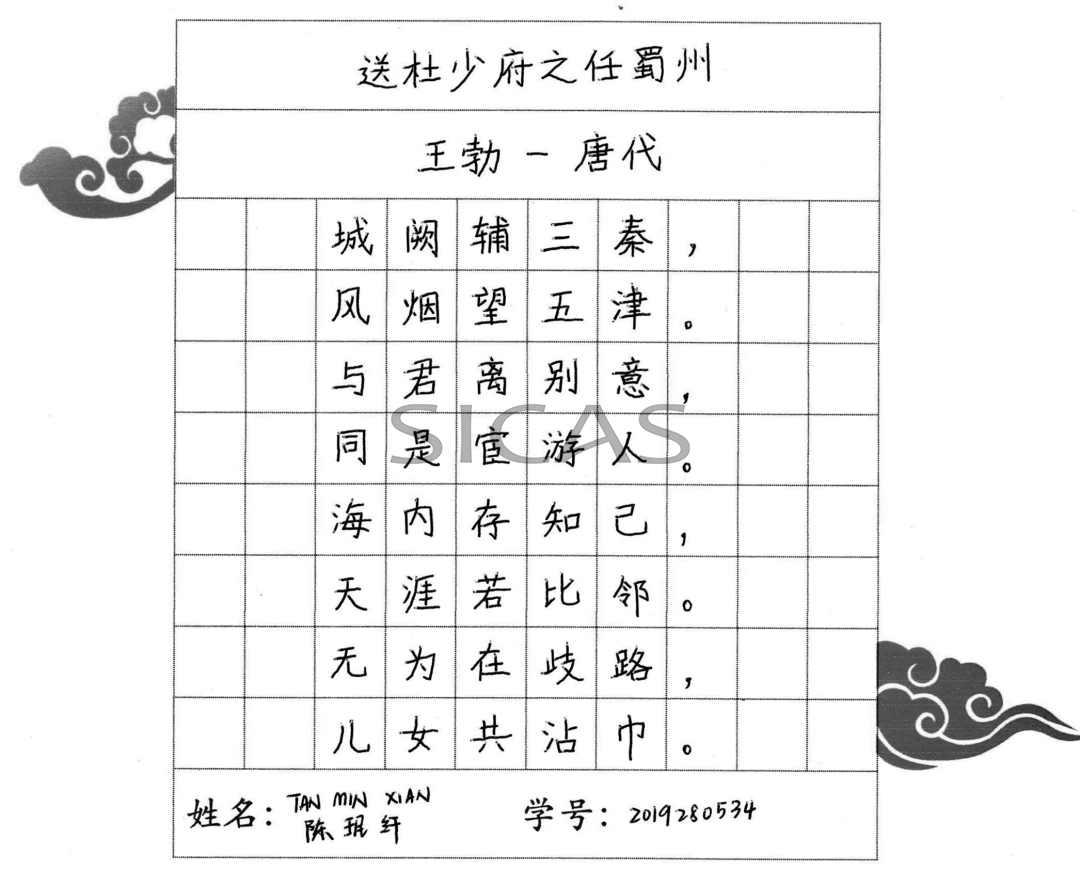 送杜少府之任蜀州
王勃 - 唐代
城阙辅三秦，
风烟望五津。
与君离别意，
同是宦游人。
SICAS
海内存知己，
天涯若比邻。
无为在歧路，
儿女共沾巾。
姓名： TAN MIN XIAN
陈珉纤
学号： 2019280534